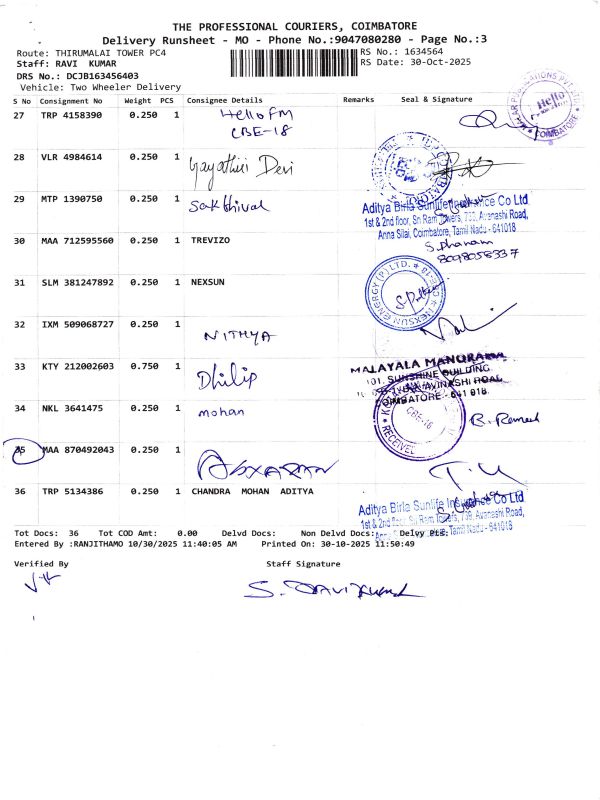 THE PROFESSIONAL COURIERS, COIMBATORE
Delivery Runsheet - MO - Phone No.:9047080280 - Page No.:3
Route: THIRUMALAI TOWER PC4 RS No.: 1634564
Staff: RAVI KUMAR RS Date: 30-Oct-2025
DRS No.: DCJB163456403
Vehicle: Two Wheeler Delivery
S No Consignment No Weight PCS Consignee Details Remarks Seal & Signature
27 TRP 4158390 0.250 1 Hello FM
CBE-18
Hello
COIMBATORE
28 VLR 4984614 0.250 1 Gayathiri Devi
29 MTP 1390750 0.250 1 Sakthival
Aditya Birla Sunlife Insurance Co Ltd
1st & 2nd floor, Sri Ram Towers, Avanashi Road,
Anna Silai, Coimbatore, Tamil Nadu - 641018
30 MAA 712595560 0.250 1 TREVIZO
S. Dhanam
8098058337
31 SLM 381247892 0.250 1 NEXSUN
NEXSUN ENERGY (P) LTD.
32 IXM 509068727 0.250 1 NITHYA
33 KTY 212002603 0.750 1 Dhilip
MALAYALA MANORAMA
101, SUNSHINE BUILDING
AVINASHI ROAD
COIMBATORE - 641 018.
34 NKL 3641475 0.250 1 mohan
CBE-18
RECEIVED
R. Ramesh
35 MAA 870492043 0.250 1
36 TRP 5134386 0.250 1 CHANDRA MOHAN ADITYA
Aditya Birla Sunlife Insurance Co Ltd
1st & 2nd floor, Sri Ram Towers, Avanashi Road,
Anna Silai, Coimbatore, Tamil Nadu - 641018
Tot Docs: 36 Tot COD Amt: 0.00 Delvd Docs: Non Delvd Docs: Delvy Pts:
Entered By :RANJITHAMO 10/30/2025 11:40:05 AM Printed On: 30-10-2025 11:50:49
Verified By Staff Signature
S. Ravi Kumar